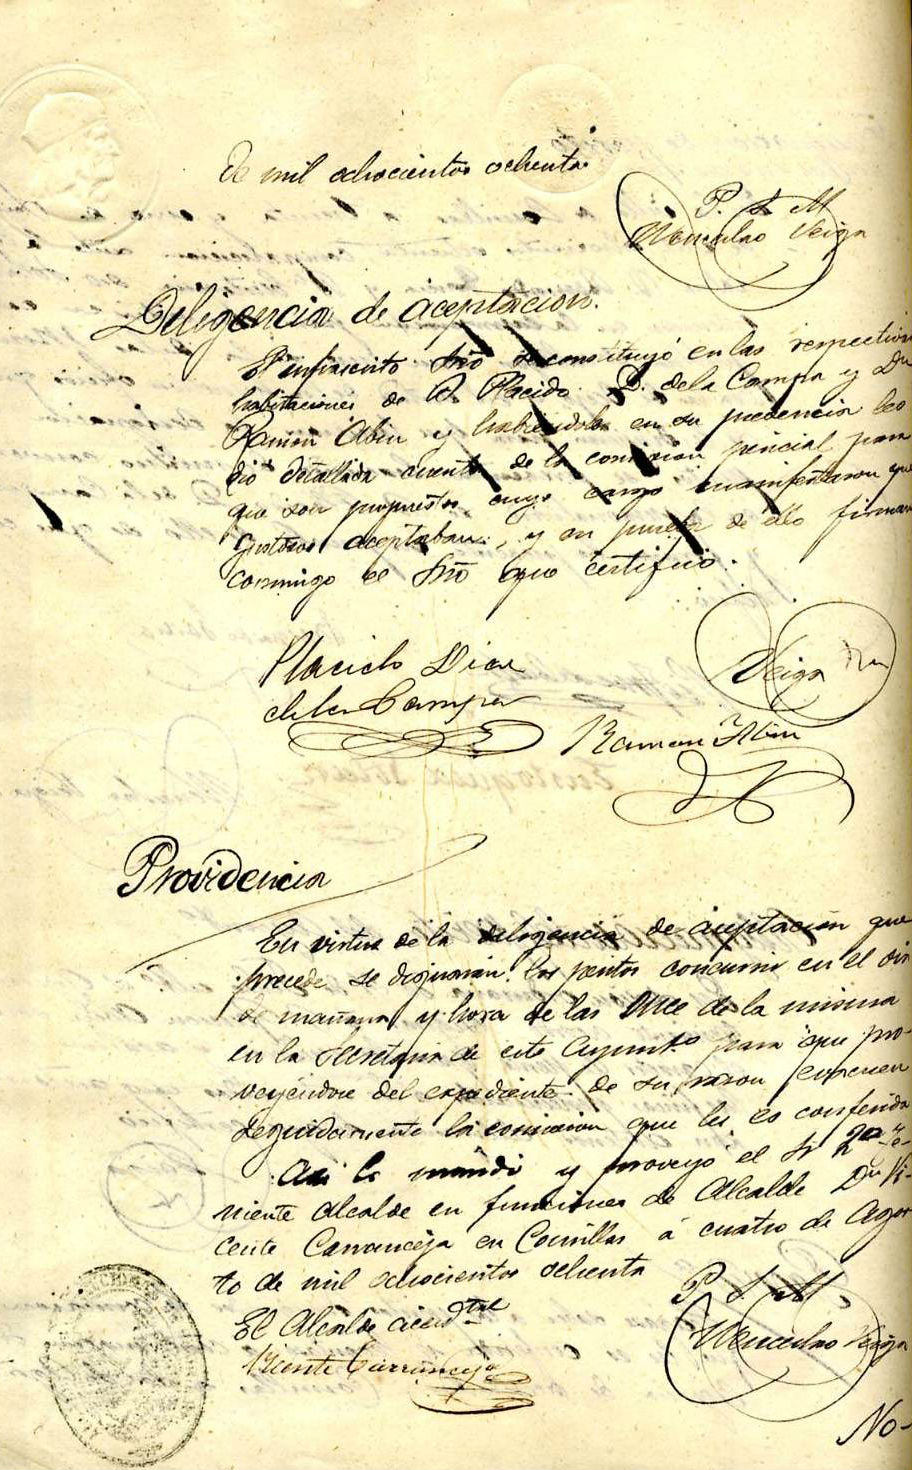 de mil ochocientos ochenta
P. S. M.
Wenceslao Veiga
Deligencia de aceptacion.
El infrascrito Srio se constituyó en las respectivas
habitaciones de D. Placido D. de la Campa y Dn
Ramon Abin y habiendoles en su presencia leo
dió detallada cuenta de la comision pericial para
que son propuestos, cuyo cargo manifestaron que
gustosos aceptaban, y en prueba de ello firman
conmigo el Srio que certifico.
Placido Diaz
de la Campa
Veiga
Ramon Abin
Providencia
En virtud de la diligencia de aceptacion que
precede se dignarán los peritos concurrir en el dia
de mañana y hora de las once de la misma
en la Secretaria de este Ayuntº para que pro-
veyendose del expediente de su razon evacuen
seguidamente la comision que les es conferida
Asi lo mandó y proveyó el Sr 2º Te-
niente Alcalde en funciones de Alcalde Dn Vi-
cente Carranceja en Comillas á cuatro de Agos-
to de mil ochocientos ochenta
El Alcalde accidtal
P. S. M.
Vicente Carranceja
Wenceslao Veiga
No-